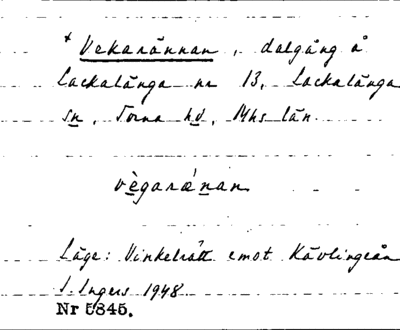 * Vekarännan, dalgång å
Lackalänga nr 13, Lackalänga
sn, Torna hd, Mhs län.
vègaræ̀nan
Läge: Vinkelrätt emot Kävlingeån
I. Ingers 1948
Nr 5845.